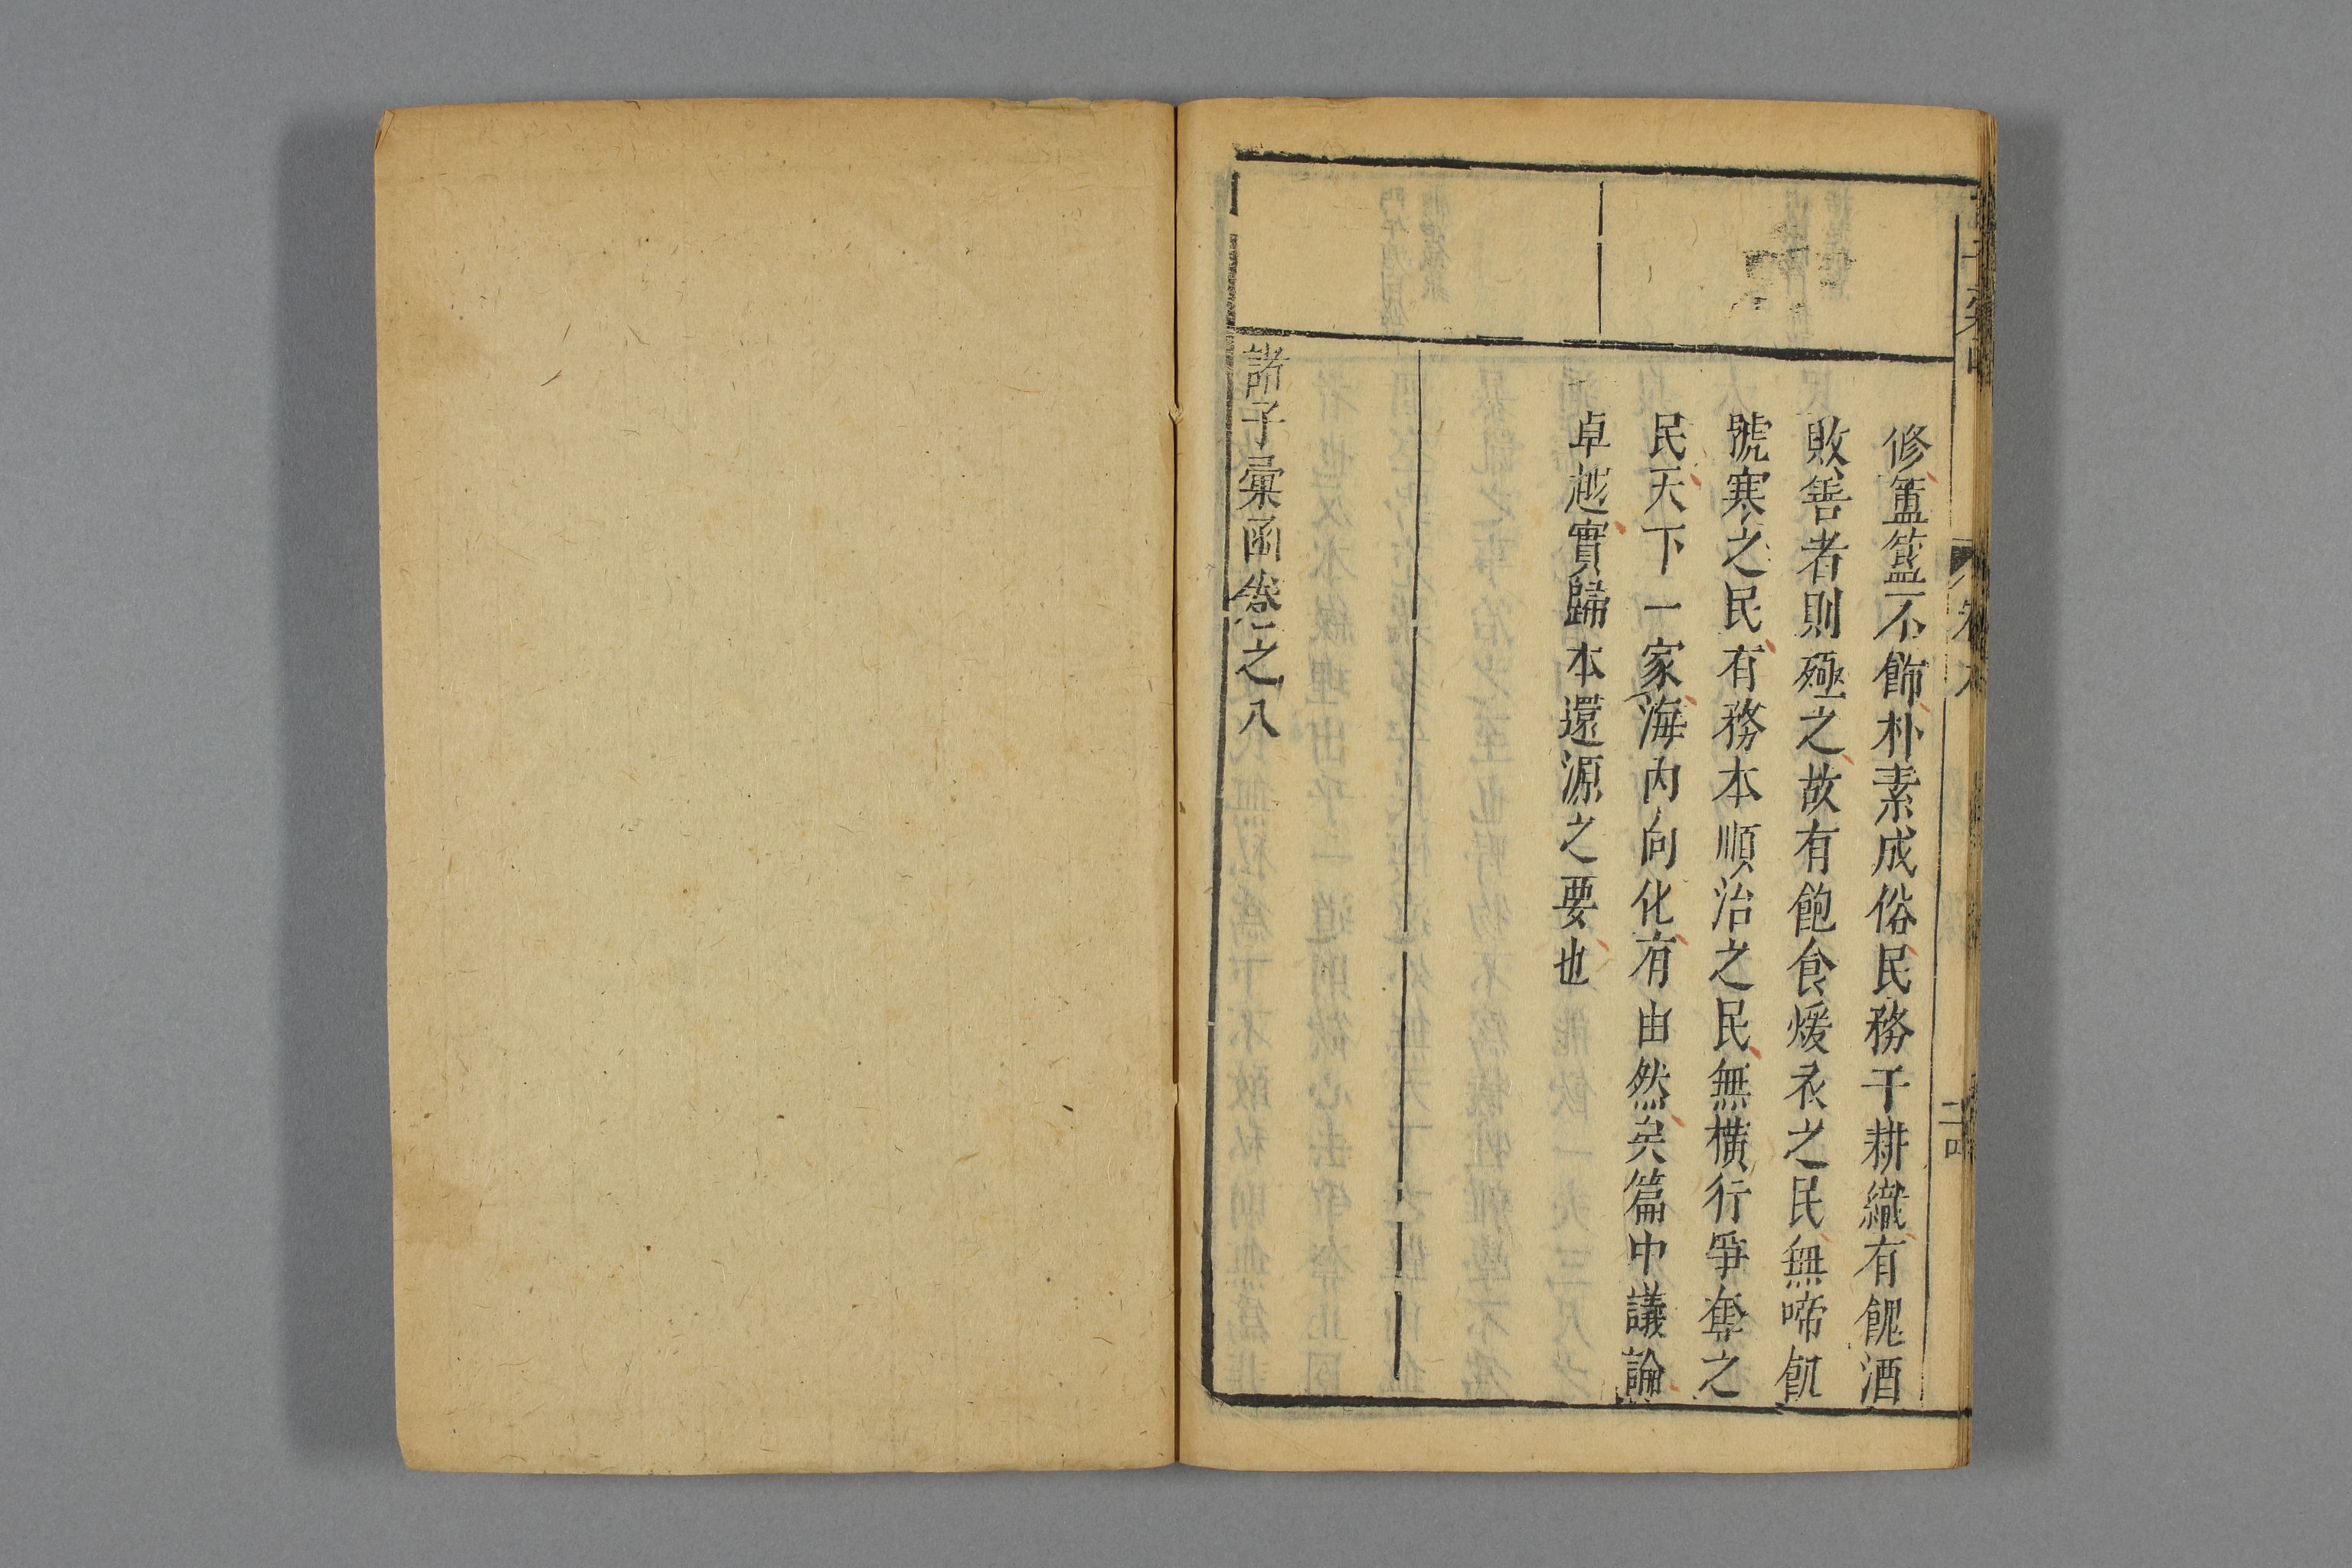 修簠簋不飾朴素成俗民務于耕織有餽酒
敗善者則殛之故有飽食煖衣之民無啼飢
號寒之民有務本順治之民無橫行爭奪之
民天下一家海內向化有由然矣篇中議論
卓越實歸本還源之要也
諸子彙函卷之八
二四